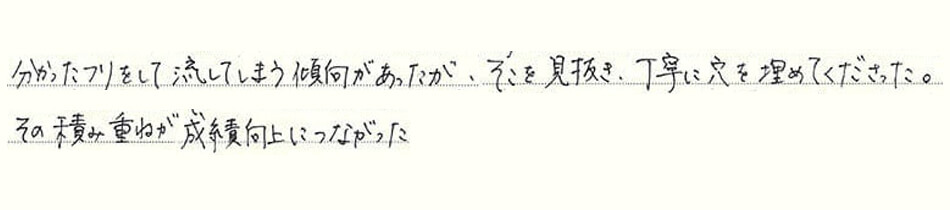 分かったフリをして流してしまう傾向があったが、そこを見抜き、丁寧に穴を埋めてくださった。
その積み重ねが成績向上につながった